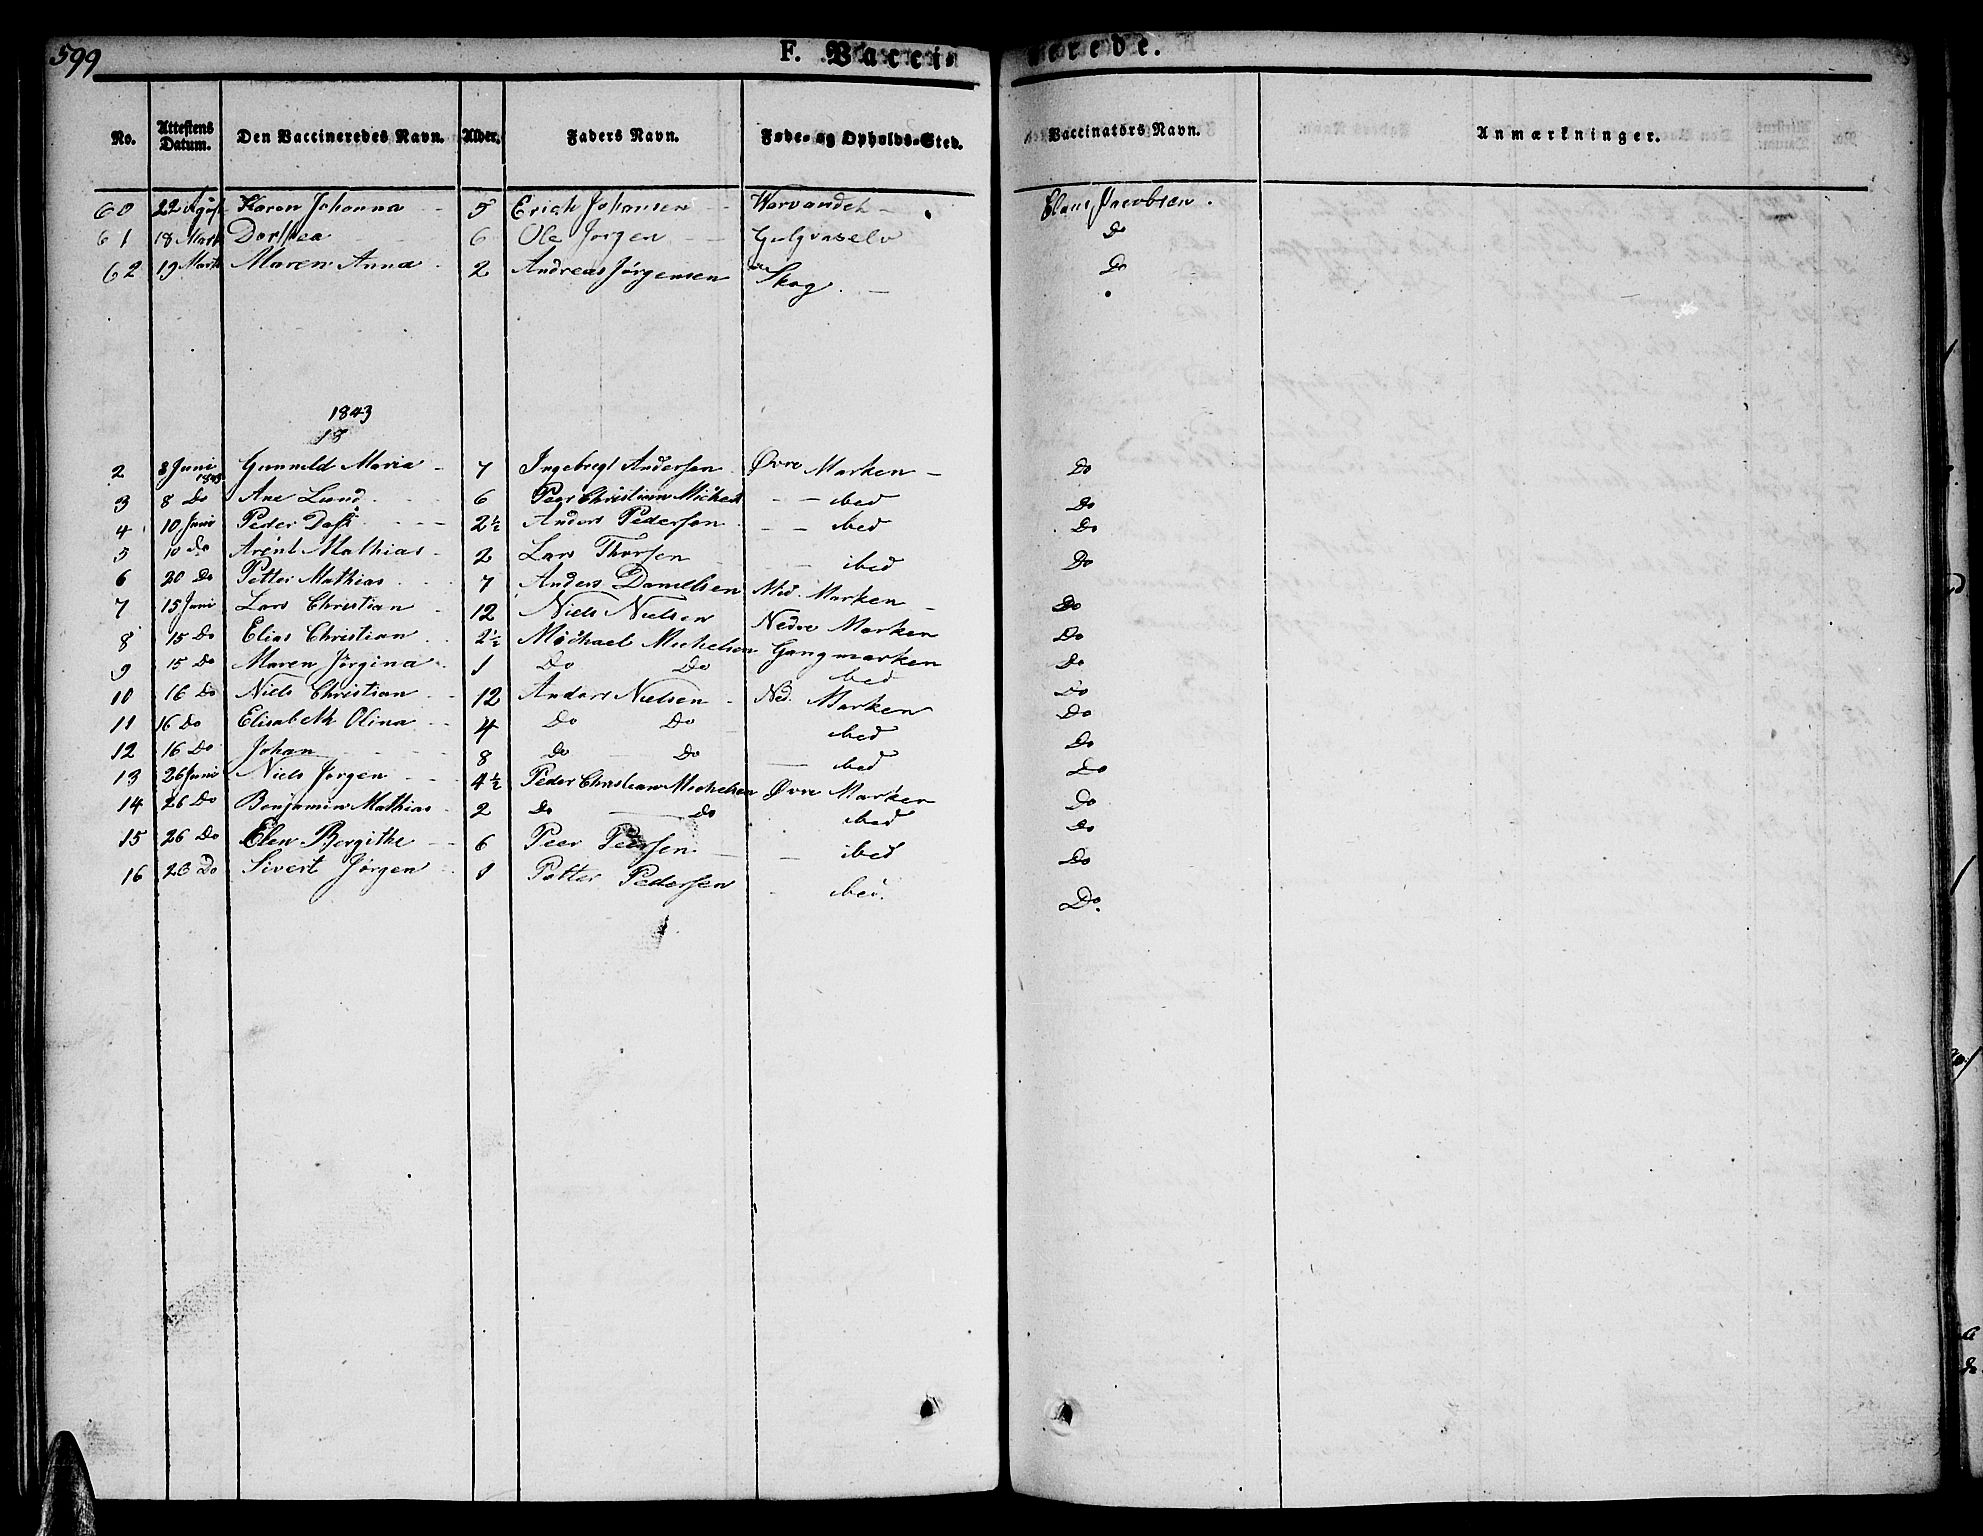 599
F. Vaccinerede.
No. Attestens Datum. Den Vaccineredes Navn. Alder. Faders Navn. Føde- og Opholds-Sted. Vaccinatörs Navn. Anmærkninger.
60 22 Karen Johanna 5 Erich Johansen Jacobsen.
61 18 Marts Dorthea 6 Ole Jorgen Do
62 19 Marts Maren Anna 2 Andreas Jørgensen Skog Do
1843
18
2 8 Juni 1843 Gunneld Maria 7 Ingebregt Andersen Øvre Marken Do
3 8 Do Ane Lund 6 Peer Christian ibed Do
4 10 Juni Peder 2½ Anders Pedersen ibed Do
5 10 do Arent Mathias 2 Lars Thorsen ibed Do
6 20 Do Petter Mathias 7 Anders Danielsen Med. Marken Do
7 15 Juni Lars Christian 12 Niels Nielsen Nedre Marken Do
8 15 Do Elias Christian 2½ Michael Michelsen Gangmarken Do
9 15 Do Maren Jørgina 1 Do Do ibed Do
10 16 Do Niels Christian 12 Anders Nielsen Ned. Marken Do
11 16 Do Elisabeth Olina 4 Do Do ibed Do
12 16 Do Johan 8 Do Do ibed Do
13 26 Juni Niels Jørgen 4½ Peder Christian Michelsen Øvre Marken Do
14 26 Do Benjamin Mathias 2 Do Do ibed Do
15 26 Do Elen Bergithe 6 Peer Pedersen ibed Do
16 26 Do Sivert Jørgen 1 Petter Pedersen ibed. Do.